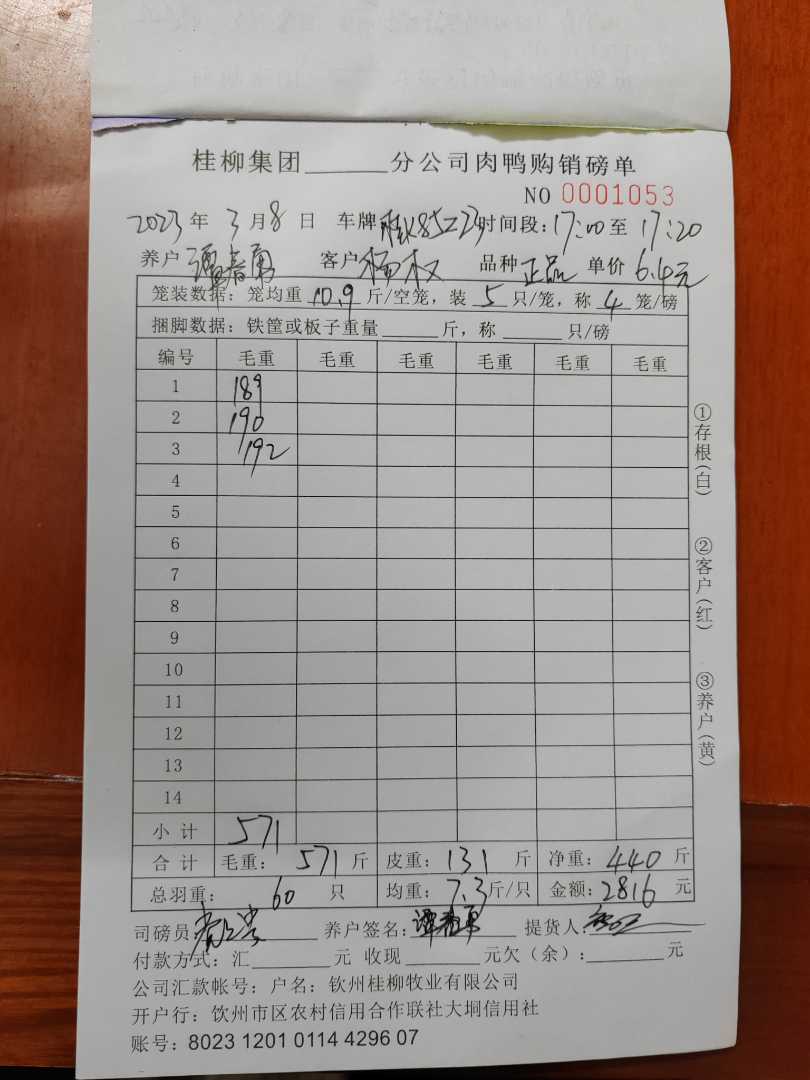 桂柳集团______分公司肉鸭购销磅单
NO 0001053
2023年3月8日 车牌 桂K85Z23 时间段:17:00至17:20
养户 谭春勇 客户 杨权 品种 正品 单价 6.4元
笼装数据:笼均重10.9斤/空笼,装5只/笼,称4笼/磅
捆脚数据:铁筐或板子重量_____斤,称_____只/磅
编号 毛重 毛重 毛重 毛重 毛重 毛重
1 189
2 190
3 192
4
5
6
7
8
9
10
11
12
13
14
小计 571
合计 毛重:571斤 皮重:131斤 净重:440斤
总羽重:60只 均重:7.3斤/只 金额:2816元
司磅员 养户签名:谭春勇 提货人:
付款方式:汇______元 收现______元欠(余):______元
公司汇款帐号:户名:钦州桂柳牧业有限公司
开户行:钦州市区农村信用合作联社大垌信用社
账号:8023 1201 0114 4296 07
①存根(白)
②客户(红)
③养户(黄)